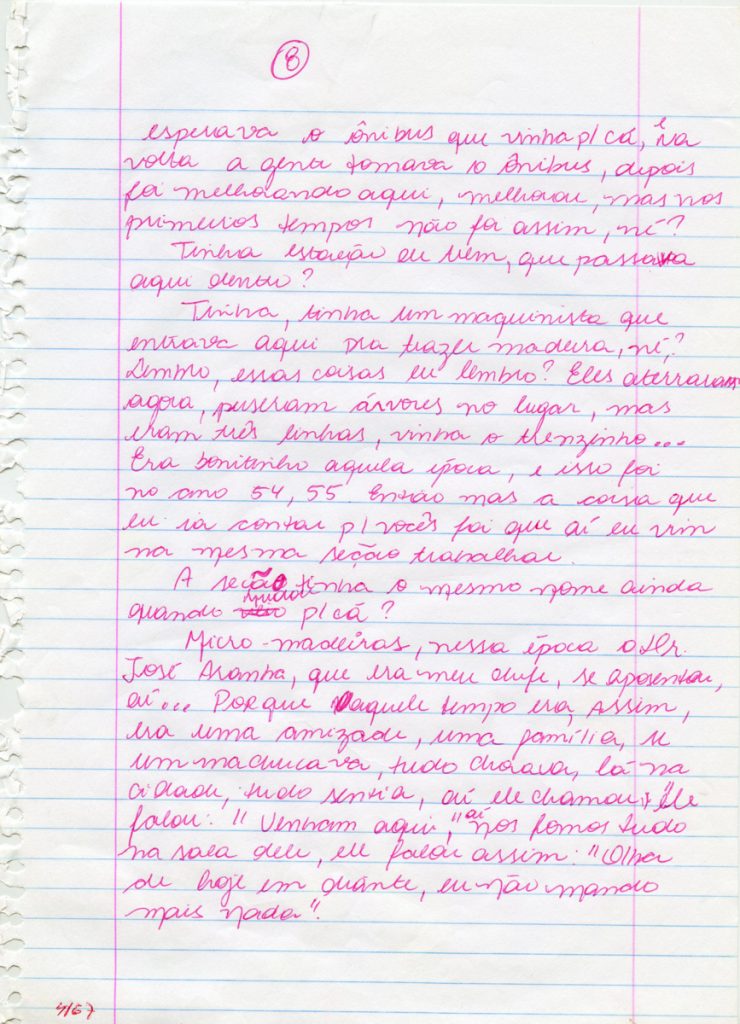 8
esperava o ônibus que vinha p/ cá, e na
volta a gente tomava o ônibus, depois
foi melhorando aqui, melhorou, mas nos
primeiros tempos não foi assim, né?
Tinha estação eu vem, que passava
aqui dentro?
Tinha, tinha um maquinista que
entrava aqui pra trazer madeira, né?
Lembro, essas coisas eu lembro? Eles aterraram
agora, puseram árvores no lugar, mas
eram três linhas, vinha o trenzinho...
Era bonitinho aquela época, e isso foi
no ano 54, 55. Então mas a coisa que
eu ia contar p/ vocês foi que aí eu vim
na mesma seção trabalhar.
A seção tinha o mesmo nome ainda
quando mudou p/ cá?
Micro-madeiras, nessa época o Dr.
José Aranha, que era meu chefe, se aposentou,
aí... Porque aquele tempo era assim,
era uma amizade, uma família, se
um machucava, tudo chorava, lá na
cidade, tudo sentia, aí ele chamou, ele
falou: "Venham aqui", aí nós fomos tudo
na sala dele, ele falou assim: "Olha
de hoje em diante, eu não mando
mais nada".
4/67